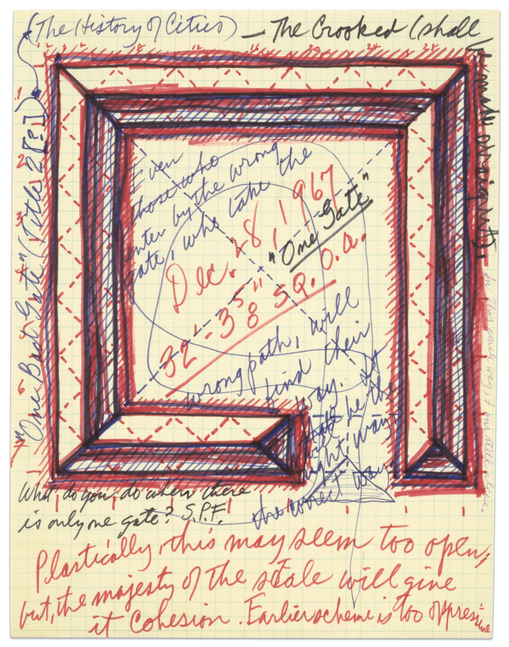 (The History of Cities) — The Crooked (shall
be made straight)
"One Bad Gate" (Title 28[?])
Even
those who
enter by the wrong
gate, who take the
wrong path, will
find their
way. It
will be the
right way
the correct way
Dec. 28, 1967
"One Gate"
32'-35"
38 SQ. O.A.
What do you do when there
is only one gate? S.P.F.
Plastically, this may seem too open,
but, the majesty of the scale will give
it cohesion. Earlier scheme is too oppressive